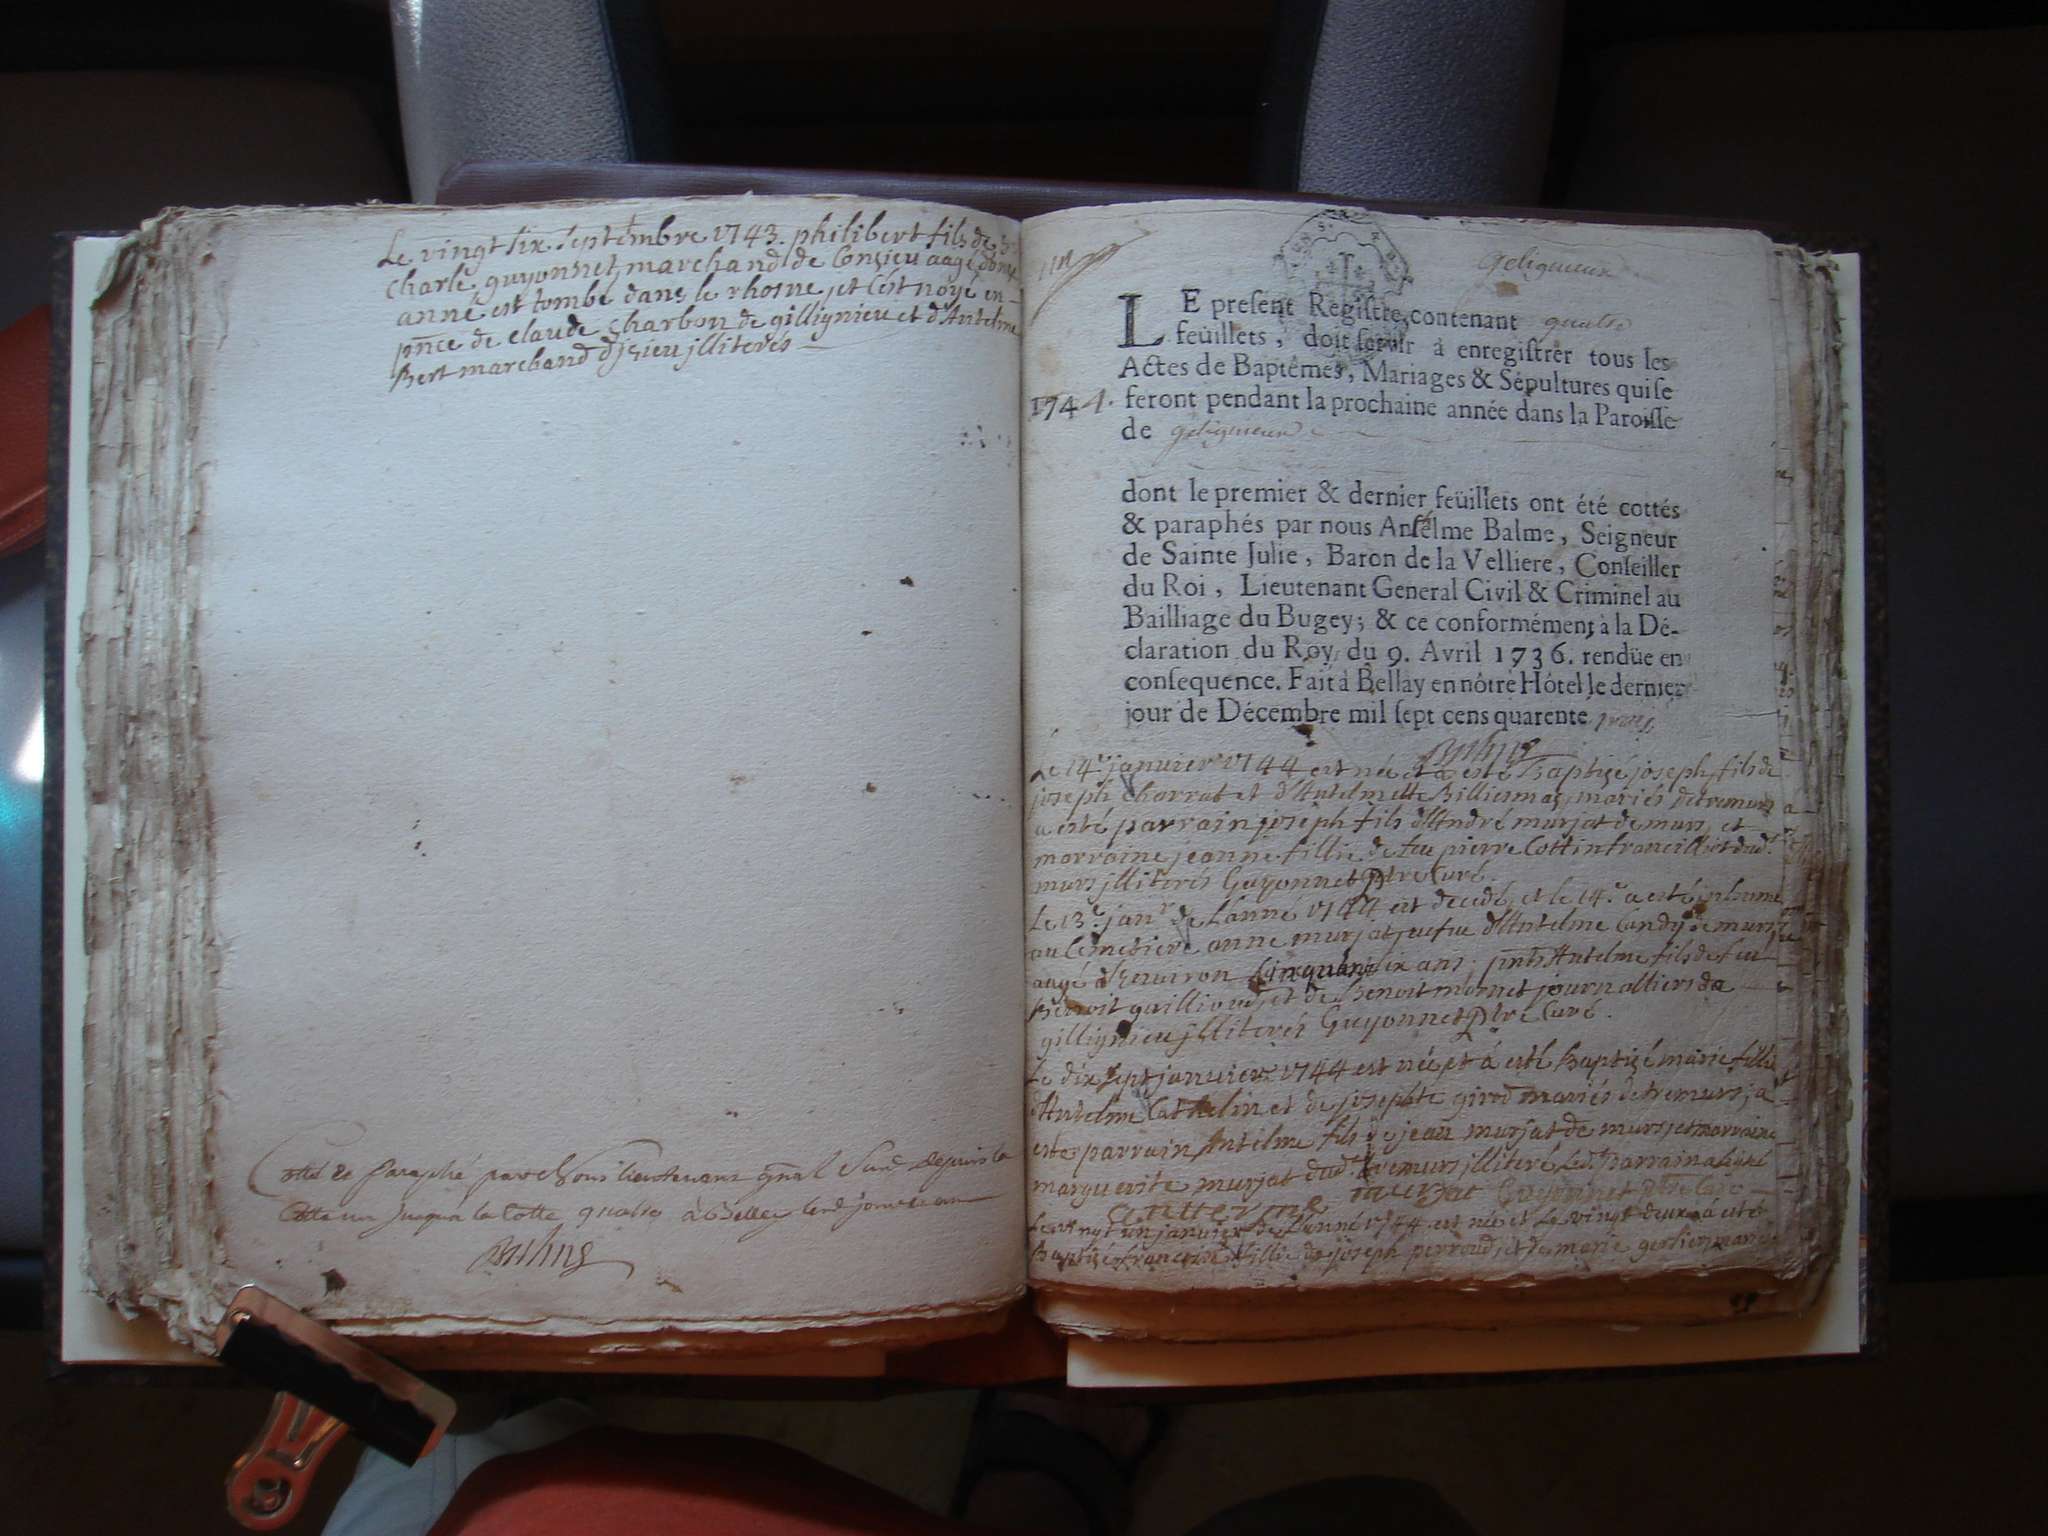 Le vingt six septembre 1743. philibert fils de
charle guyonnet marchand de Conzieu aagé douze
anné est tombé dans le rhosne et s'est noyé en
pnce de claude Charbon de gillignieu et d'Antelme
Bert marchand d'jzieu jlliterés
Cotté et Paraphé par Nous lieutenant gnal Sud depuis la
Cotte un Jusqu'a la Cotte quatre à Belley led jour et an
geligneux
LE present Registre, contenant quatre
feüillets, doit servir à enregistrer tous les
Actes de Baptêmes, Mariages & Sépultures qui se
1744. feront pendant la prochaine année dans la Paroisse
de geligneux
dont le premier & dernier feüillets ont été cottés
& paraphés par nous Anselme Balme, Seigneur
de Sainte Julie, Baron de la Velliere, Conseiller
du Roi, Lieutenant General Civil & Criminel au
Bailliage du Bugey; & ce conformément à la Dé-
claration du Roy du 9. Avril 1736. rendüe en
consequence. Fait à Bellay en nôtre Hôtel le dernier
jour de Décembre mil sept cens quarente trois
Le 14.e janvier 1744 est né et a esté Baptizé joseph fils de
joseph Charrat et d'Antelmette Billiemaz mariés de tremurs
a esté parrain joseph fils d'André murjat de murs et
marraine jeanne fillie de feu pierre Cottin francilliet dud.
murs jlliterés Guyonnet Ptre Curé.
Le 13.e janr de l'anné 1744 est decedé et le 14.e a esté inhumé
au Cemetiere anne murjat veufue d'Antelme Candy de murs
aagé d'Enuiron Cinquante six ans, pnts Antelme fils de feu
Benoit guilliond et de Benoit mornet journalliers de
gillignieu jlliterés Guyonnet Ptre Curé.
Le dix sept janvier 1744 est née et à esté Baptizé marie fillie
d'Antelme Cathelin et de josephte girod mariés de tremurs, a
esté parrain Antelme fils de jean murjat de murs et marraine
marguerite murjat dud. tremurs jlliteré Led. Parrain a signé
antterme murjat Guyonnet ptre Curé
Le vingt un janvier de l'anné 1744 est née et le vingt deux a esté
Baptizé francoise fillie de joseph perroud, et de marie gerlier mariés